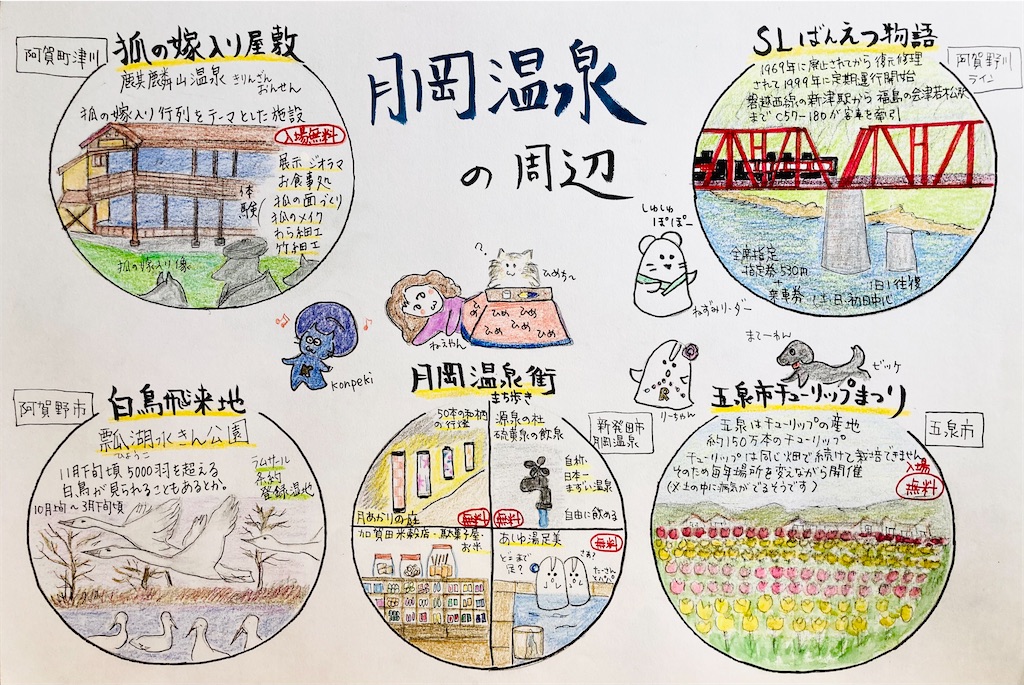 月岡温泉
の周辺
阿賀町津川
狐の嫁入り屋敷
麒麟山温泉 きりんざん
おんせん
狐の嫁入り行列をテーマとした施設
入場無料
展示 ジオラマ
お食事処
体験
狐の面づくり
狐のメイク
わら細工
竹細工
狐の嫁入り像
SLばんえつ物語
阿賀野川
ライン
1969年に廃止されてから復元修理
されて1999年に定期運行開始
磐越西線の新津駅から福島の会津若松駅
までC57-180が客車を牽引
全席指定
指定券530円
+
乗車券
1日1往復
土日祝日中心
しゅしゅ
ぽぽー
ねずみリーダー
?
ひめち〜
ねえやん
ひめ ひめ ひめ
ひめ ひめ
konpeki
R
りーちゃん
まてーわん
ゼッケ
阿賀野市
白鳥飛来地
瓢湖水きん公園
ひょうこ
11月下旬頃 5000羽を超える
白鳥が見られることもあるとか。
10月上旬〜3月下旬頃
ラムサール
条約
登録湿地
月岡温泉街
まち歩き
新発田市
月岡温泉
50本の和柄
の行燈
月あかりの庭
無料
源泉の杜
硫黄泉の飲泉
自称・
日本一
まずい温泉
自由に飲める
無料
加賀田米穀店・駄菓子屋・
お米
あしゆ湯足美
無料
どこまで
足?
さぁ?
たーさん
とパパ
五泉市チューリップまつり
五泉市
五泉はチューリップの産地
約150万本のチューリップ
チューリップは同じ畑で続けて栽培できません
そのため毎年場所を変えながら開催
(メ土の中に病気がでるそうです)
入場
無料